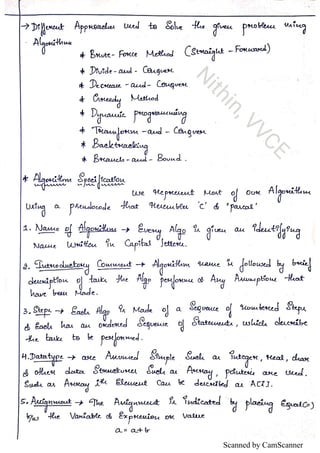 → Different Approaches used to Solve the given problem using
Algorithms
* Brute-Force Method (Straight-Forward)
* Divide-and-Conquer
* Decrease-and-Conquer
* Greedy Method
* Dynamic programming
* Transform-and-Conquer
* Backtracking
* Branch-and-Bound.
Nithin, VVCE
* Algorithm Specification
We Represent Most of our Algorithm
Using a pseudocode that Resembles 'C' & "pascal"
1. Name of Algorithm → Every Algo is given an identifying
Name written in Capital letters.
2. Introductory Comment → Algorithm name is followed by brief
description of tasks the Algo performs & Any Assumptions that
have been Made.
3. Steps → Each Algo is Made of a Sequence of numbered Steps
& Each has an ordered Sequence of Statements, which describe
the tasks to be performed.
4. Datatype → are Assumed Simple Such as Integer, real, char
& other data Structures Such as Array, pointers are used.
Such as Array ith Element Can be described as A[I].
5. Assignment → The Assignment is indicated by placing Equal(=)
b/w the Variable & Expression or value
a = a+b
Scanned by CamScanner